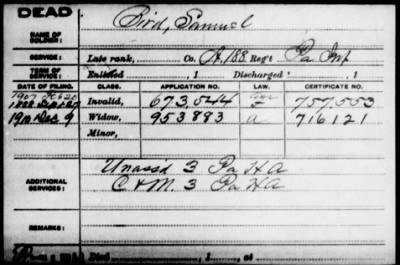 DEAD
Bird, Samuel
NAME OF SOLDIER:
SERVICE: Late rank, Co. A, 188 Reg't Pa Inf
TERM OF SERVICE: Enlisted , 1 Discharged , 1
DATE OF FILING. CLASS. APPLICATION NO. LAW. CERTIFICATE NO.
1888 Sept 27 Invalid, 673,544 757,553
1911 Dec 9 Widow, 953883 a 716121
Minor,
ADDITIONAL SERVICES:
Unass'd 3 Pa H A
C & M. 3 Pa H A
REMARKS:
Died , 1 , at